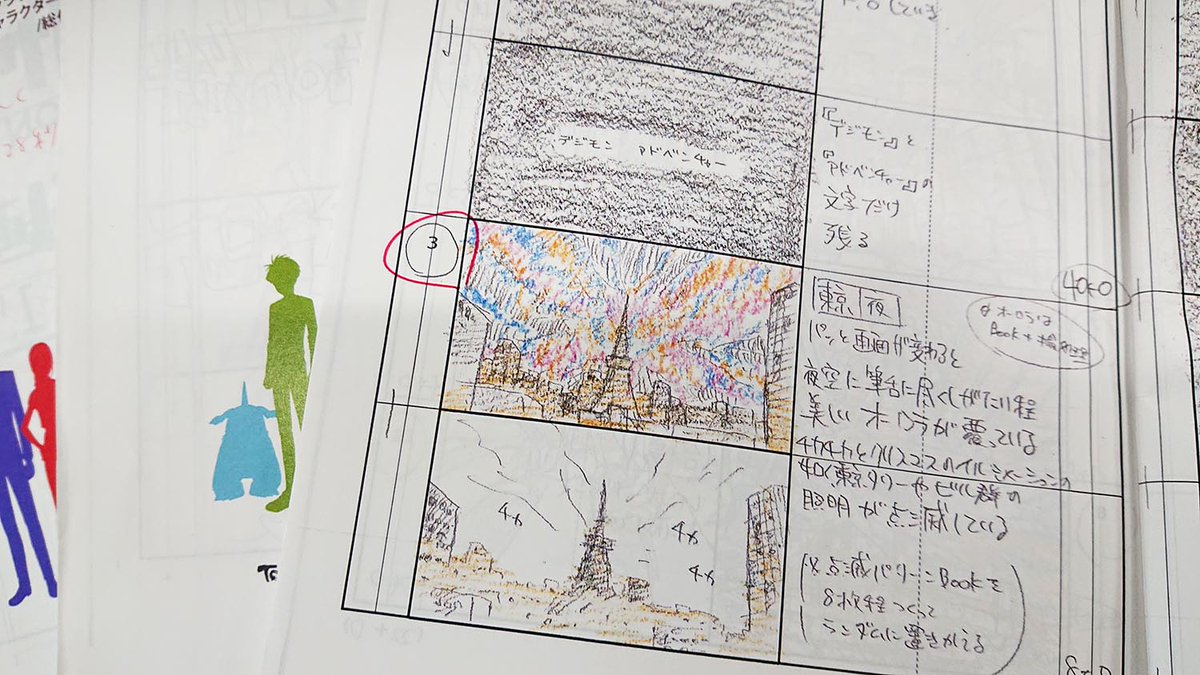 ャラクター
デジモン アドベンチャー
『デジモン』と
『アドベンチャー』の
文字だけ
残る
3
東京 夜
40+0
※オーロラは
パッと画面が変わると
夜空に筆舌に尽くしがたい程
美しいオーロラが覆っている
チカチカとクリスマスのイルミネーションの
如く東京タワーやビル群の
照明が点滅している
チカ
チカ
チカ
(※点滅パターンBookを
8枚程つくって
ランダムに置きかえる)
8+0